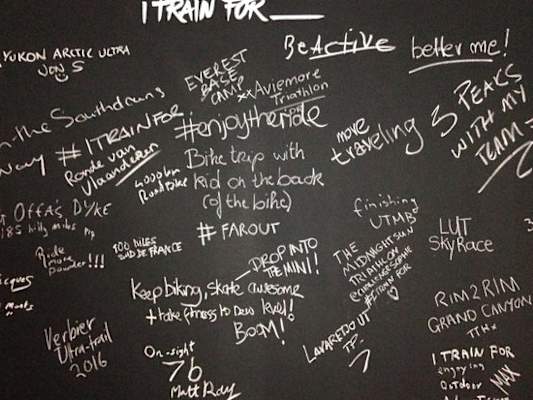 I TRAIN FOR ___
YUKON ARCTIC ULTRA
JON S
BeActive
better me!
EVEREST
BASE
CAMP
xx Aviemore
Triathlon
on the Southdowns
way
#ITRAINFOR
Ronde van
Vlaanderen
#enjoytheride
move
traveling
3 PEAKS
WITH MY
TEAM
4000km
Roadbike
Bike trip with
kid on the back
(of the bike)
# FAROUT
OFFA'S DYKE
185 hilly miles
Ride
more
powder!!!
100 MILES
SUD DE FRANCE
finishing
UTMB
LUT
SKYRACE
THE
MIDNIGHTSUN
TRIATHLON
#ITRAIN FOR
DROP INTO
THE MINI!
Keep biking, skate awesome
+ take fitness to Dew level!
BOOM!
RIM2RIM
GRAND CANYON
Verbier
Ultra-trail
2016
LAVAREDO UT
On-sight
7b
Matt Ray
I TRAIN FOR
enjoying
outdoor
MAX